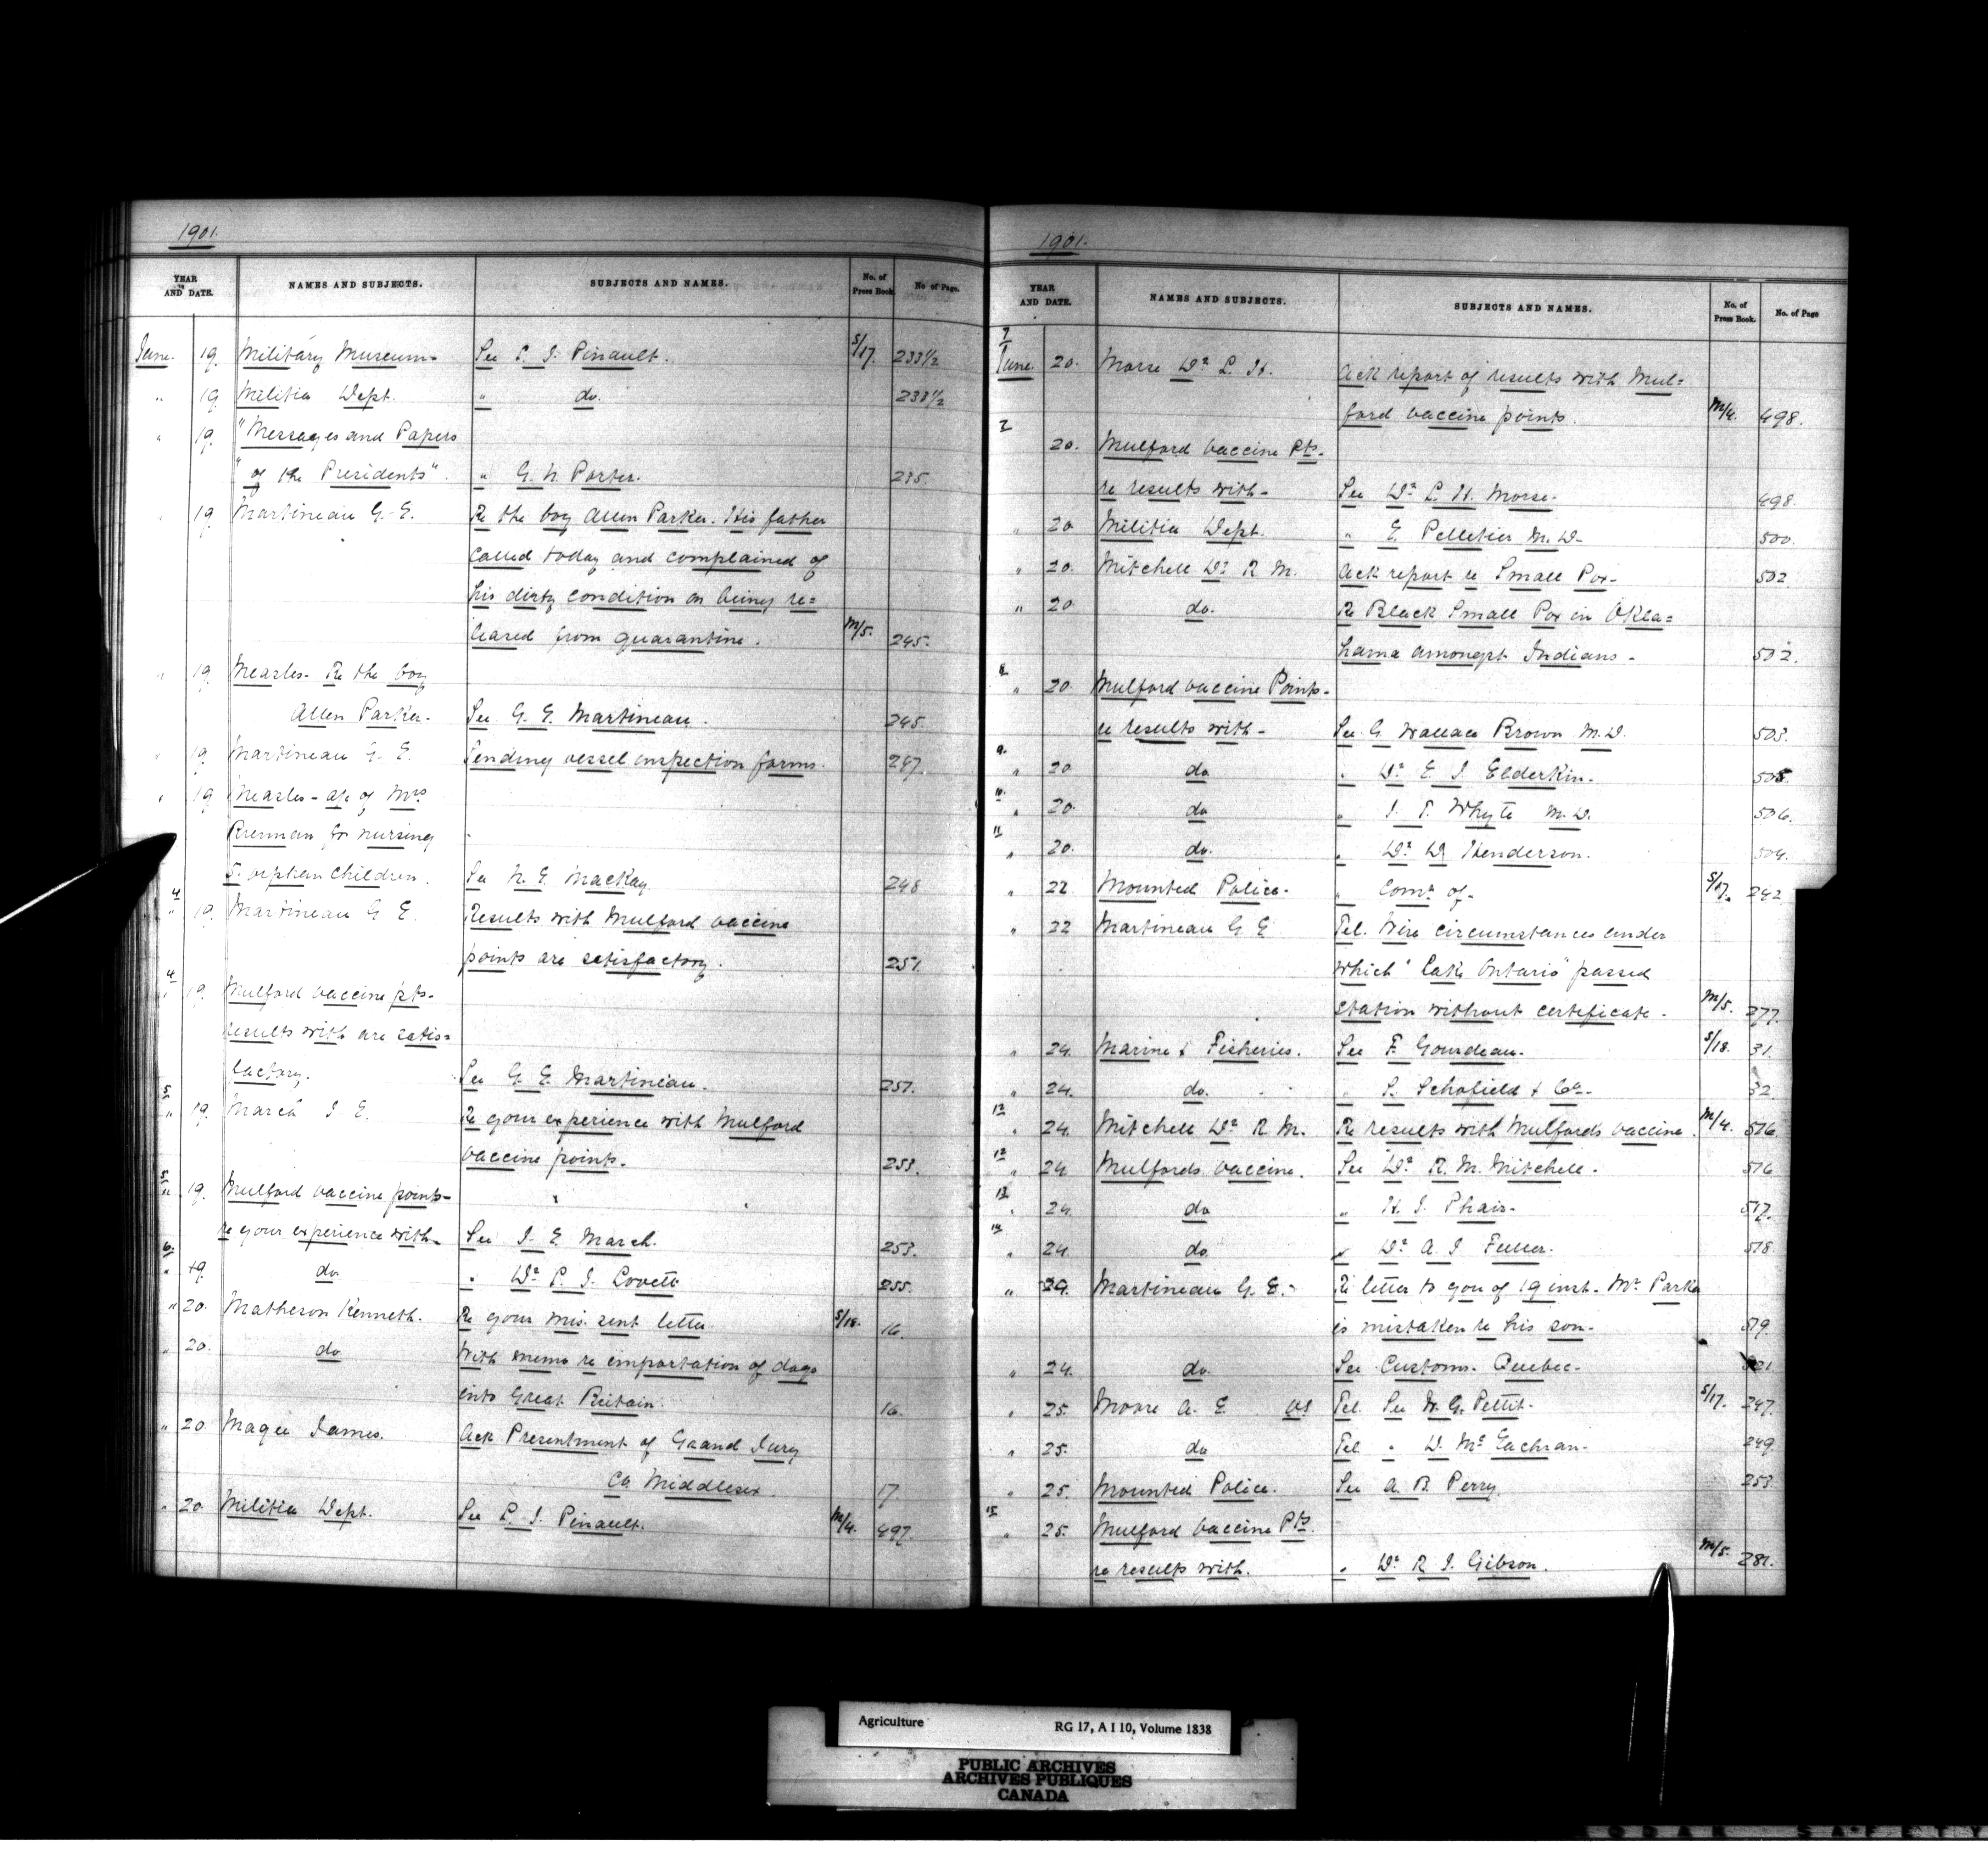 1901.
YEAR AND DATE. NAMES AND SUBJECTS. SUBJECTS AND NAMES. No. of Press Book. No of Page.
June. 19. Military Museum- See L. I. Pinault. S/17. 233½
" 19 Militia Dept. " do. 233½
" 19. "Messages and Papers
"of the Presidents". " G. N. Porter. 235.
" 19 Martineau G. E. Re the boy Allen Parker. His father
called today and complained of
his dirty condition on being re=
leased from quarantine. M/5. 245.
" 19. Measles- Re the boy
Allen Parker- See G. E. Martineau. 245.
" 19. Martineau G. E. Sending vessel inspection forms. 247.
" 19 Measles- a/c of Mrs
for nursing
5. orphan children. See N. E. MacKay. 248
4 " 19. Martineau G E. Results with Mulford vaccine
points are satisfactory. 251.
4 " 19. Mulford vaccine pts-
results with are satis=
factory. See G. E. Martineau. 251.
5 " 19. March I. E. Re your experience with Mulford
vaccine points. 253.
5 " 19. Mulford vaccine points-
re your experience with- See I. E. March. 253.
6. " 19. do " Dr. P. I. Lovett 255.
" 20. Matheson Kenneth. Re your mis. sent letter. S/18. 16.
" 20. do With memo re importation of dogs
into Great Britain. 16.
" 20 Magee James. Ack Presentment of Grand Jury
Co Middlesex. 17
" 20. Militia Dept. See L. I. Pinault. M/4. 497.
1901.
YEAR AND DATE. NAMES AND SUBJECTS. SUBJECTS AND NAMES. No. of Press Book. No. of Page
7 June. 20. Morse Dr. L. H. Ack report of results with Mul=
ford vaccine points. M/4. 498.
7 20. Mulford vaccine Pts.
re results with- See Dr. L. H. Morse. 498.
" 20 Militia Dept. " E. Pelletier M.D- 500.
" 20. Mitchell Dr. R M. Ack report re Small Pox- 502
" 20. do. Re Black Small Pox in Okla=
homa amongst Indians- 502.
8 " 20. Mulford vaccine Points-
re results with- See G Wallace Brown M.D. 503.
9. " 20 do " Dr. E. I. Elderkin. 505.
10. " 20. do " I. T. Whyte M.D. 506.
11 " 20. do. " Dr. D Henderson. 509.
" 22 Mounted Police- " Comr. of- S/17. 242
" 22 Martineau G E Tel. Wire circumstances under
which "Lake Ontario" passed
station without certificate. M/5. 277.
" 24. Marine & Fisheries. See F. Gourdeau. S/18. 31.
" 24. do. " S. Schofield & Co. 32
12 " 24. Mitchell Dr. R. M. Re results with Mulfords vaccine. M/4. 516.
12 " 24 Mulfords vaccine. See Dr. R. M. Mitchell. 516
13 " 24. do " H. I. Phair- 517.
14 " 24. do " Dr. A. I. Fuller. 518.
" 24. Martineau G. E.- Re letter to you of 19 inst- Mr. Parker
is mistaken re his son- 519.
" 24. do. See Customs. Quebec- 521
" 25. Moore A. E. VS Tel. See W. G. Pettit. S/17. 247.
" 25. do Tel " D. McEachran. 249.
" 25. Mounted Police. See A. B. Perry. 253
15 " 25. Mulford vaccine Pts
re results with. " Dr. R. I. Gibson. M/5. 281.
Agriculture RG 17, A I 10, Volume 1838
PUBLIC ARCHIVES
ARCHIVES PUBLIQUES
CANADA